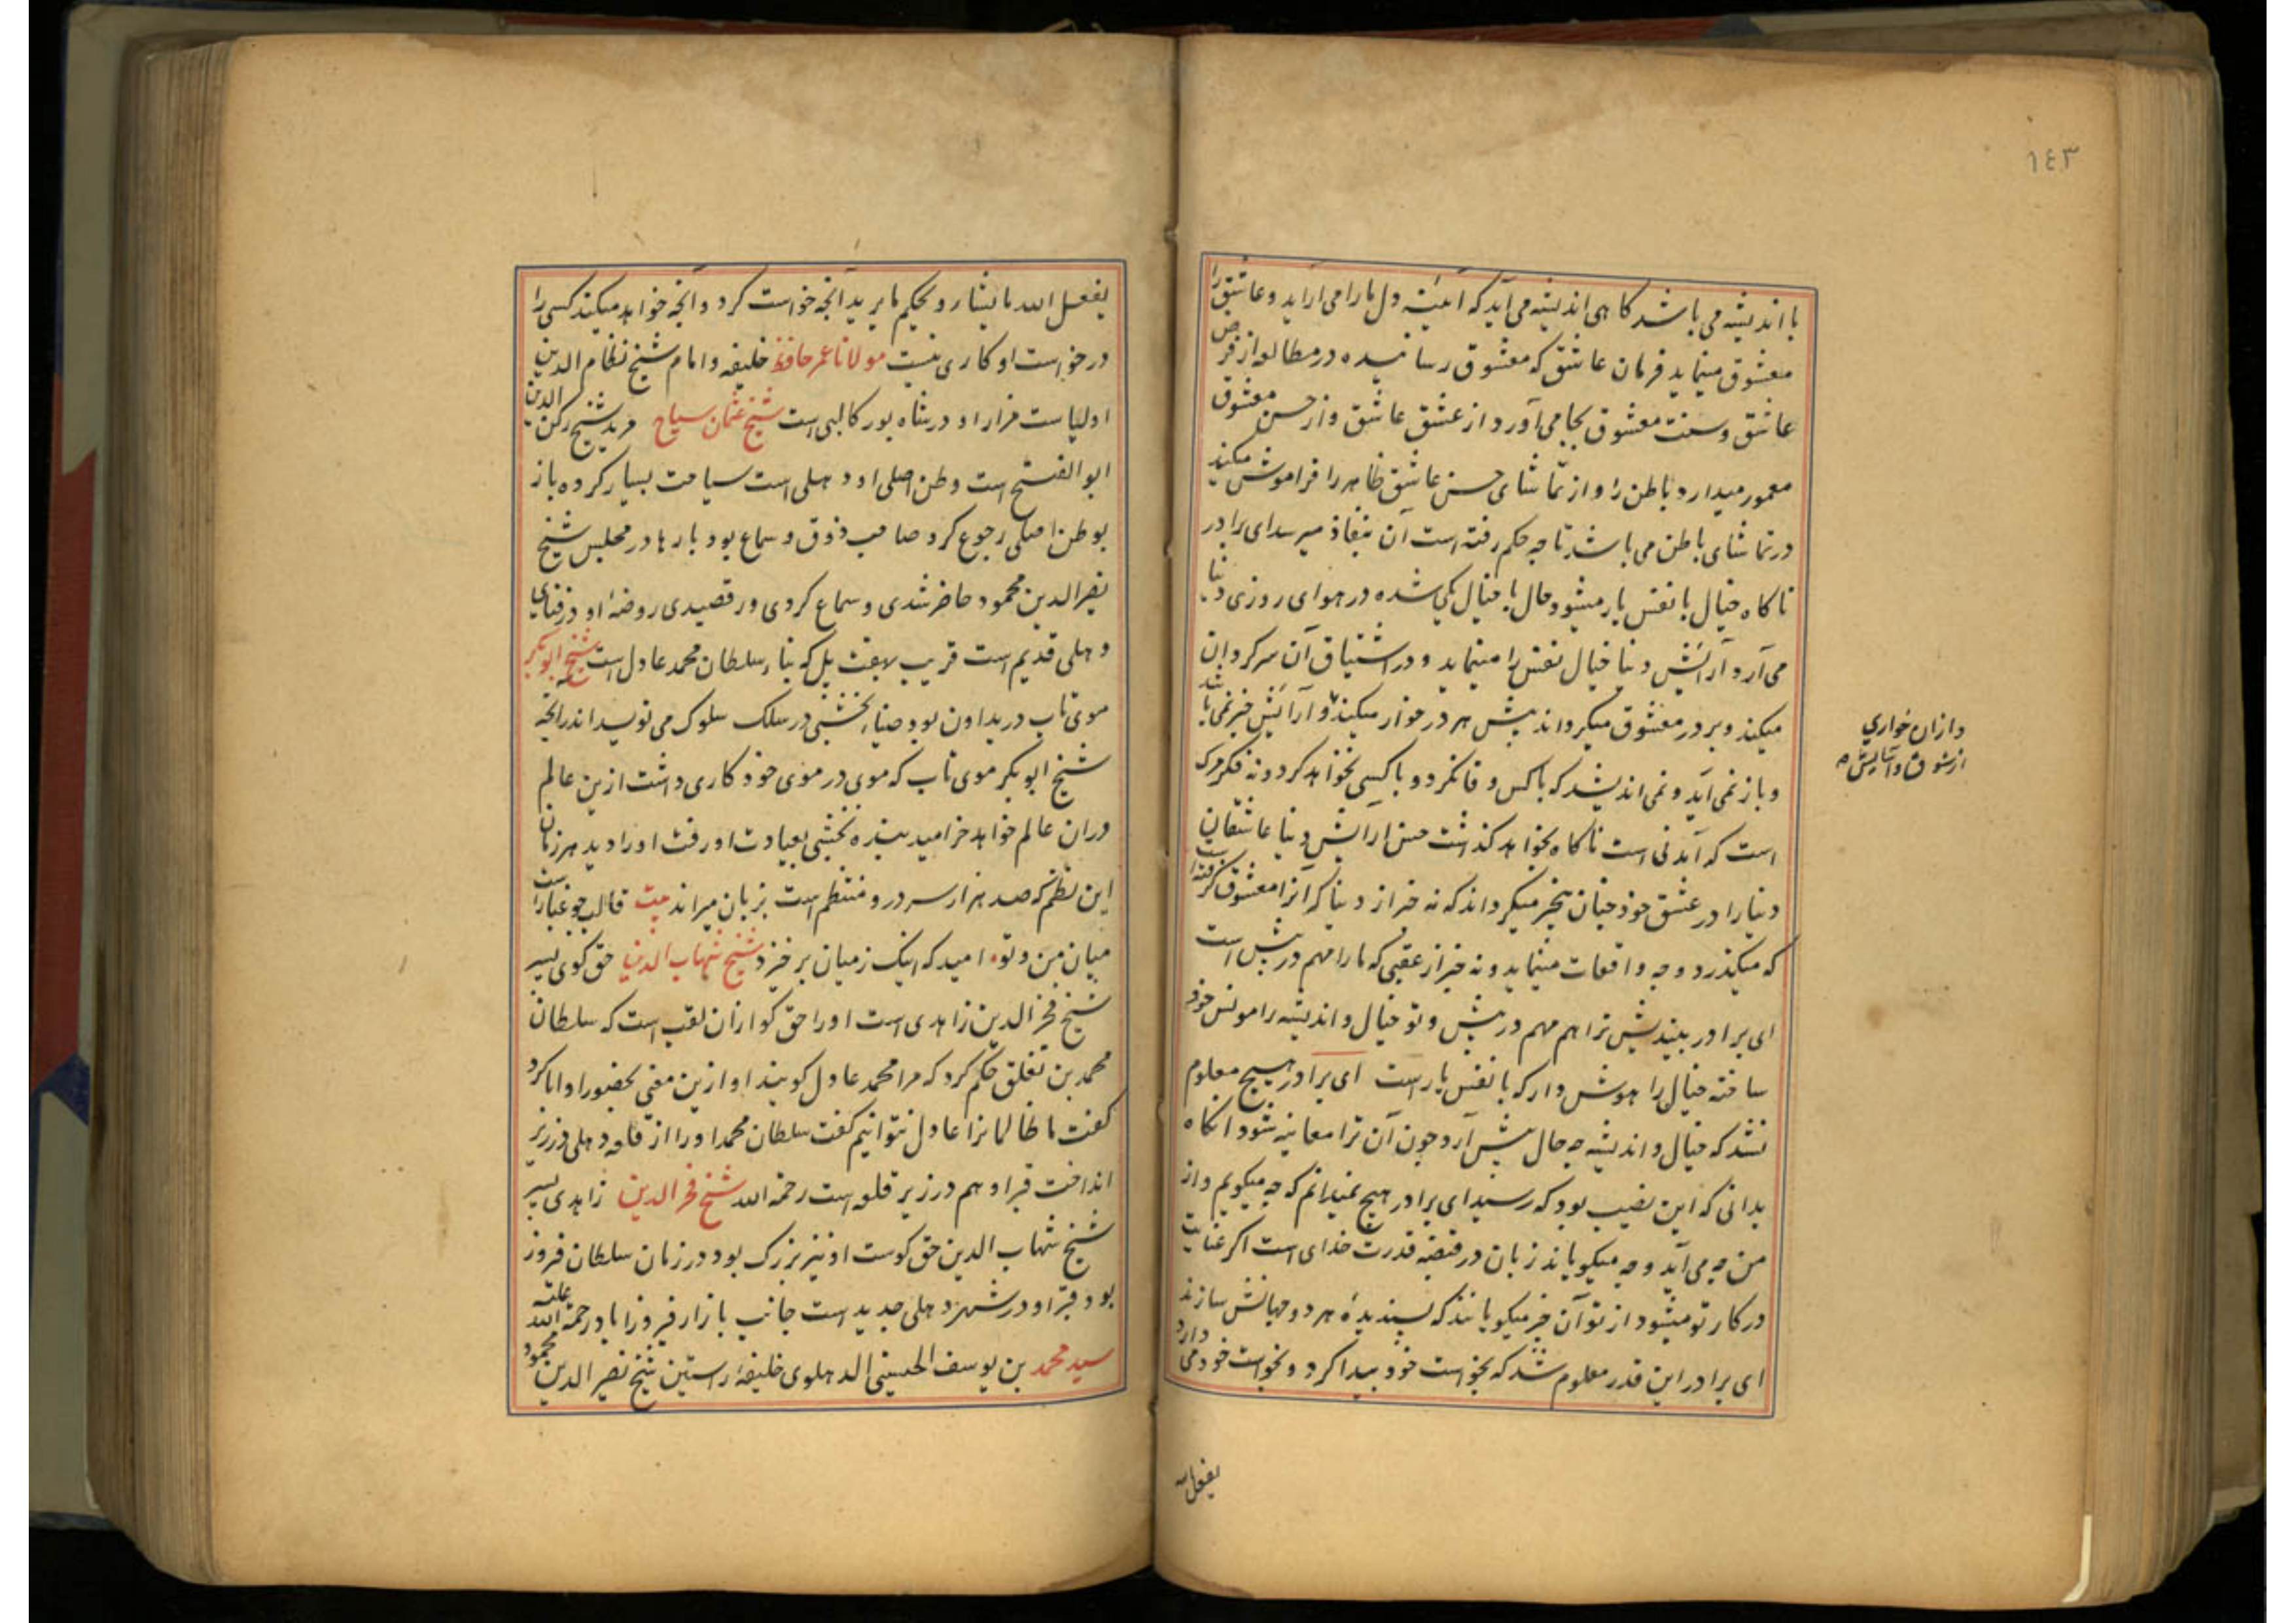 ١٤٣
با اندیشه می باشد کاهی اندیشه می آید که آئینهٔ دل ما را می آراید و عاشق را
معشوق مینماید فرمان عاشق که معشوق رسانیده در مطالعه از فرض
عاشق و سنت معشوق بجا می آورد از عشق عاشق و از حسن معشوق
معمور میدارد باطن را و از تماشای حسن عاشق ظاهر را فراموش میکند
در تماشای باطن می باشد تا چه حکم رفته است آن بنفاذ میرسد ای برادر
ناکاه خیال با نفس یار میشود و حال با خیال یکی شده در هوای روزی دنیا
می آرد و آرایش دنیا خیال نفس را مینماید و در اشتیاق آن سرکردان
میکند و بر در معشوق میکرداند پیش هر در خوار میکند و آرایش خبر نمی باشد
و باز نمی آید و نمی اندیشد که با کس وفا نکرد و با کسی نخواهد کرد و نه فکر مرک
است که آمدنی است ناکاه بخواهد کذشت حسن آرایش دنیا عاشقان
دنیا را در عشق خود چنان بیخبر میکرداند که نه خبر از دنیا که آنرا معشوق کرفته است
که میکذرد و چه واقعات مینماید و نه خبر از عقبی که ما را مهم در پیش است
ای برادر بیندیش ترا هم مهم در پیش و تو خیال و اندیشه را مونس خود
ساخته خیال را هوش دار که با نفس یار است ای برادر هیچ معلوم
نشد که خیال و اندیشه چه حال پیش آرد چون آن ترا معاینه شود آنکاه
بدانی که این نصیب بود که رسید ای برادر هیچ نمیدانم که چه میکویم و از
من چه می آید و چه میکویاند زبان در قبضهٔ قدرت خدای است اکر عنایت
در کار تو میشود از تو آن چیز میکویانند که پسندیدهٔ هر دو جهانش سازند
ای برادر این قدر معلوم شد که بخواست خود پیدا کرد و بخواست خود می دارد
و ازان خواری
از شوق و آسایش ه
یفعل الله
یفعل الله ما یشاء و یحکم ما یرید آنچه خواست کرد و آنچه خواهد میکند کسی را
در خواست او کاری نیست مولانا عمر حافظ خلیفه و امام شیخ نظام الدین
اولیاست مزار او در شاه پور کالپی است شیخ عثمان سیاح مرید شیخ رکن الدین
ابو الفتح است وطن اصلی او دهلی است سیاحت بسیار کرده باز
بوطن اصلی رجوع کرد صاحب ذوق و سماع بود بارها در مجلس شیخ
نصیر الدین محمود حاضر شدی و سماع کردی و رقصیدی روضهٔ او در فنای
دهلی قدیم است قریب بهفت پل که بناء سلطان محمد عادل است شیخ ابو بکر
موی تاب در بداون بود ضیاء نخشبی در سلک سلوک می نویسد اندرانچه
شیخ ابو بکر موی تاب که موی در موی خود کاری داشت ازین عالم
دران عالم خواهد خرامید بنده نخشبی بعیادت او رفت او را دید هر زمان
این نظم که صد هزار سر درو منتظم است بزبان میراند بیت قالب چو غبار است
میان من و تو • امید که اینک ز میان برخیزد شیخ شهاب الدین حق کوی پسر
شیخ فخر الدین زاهدی است او را حق کو ازان لقب است که سلطان
محمد بن تغلق حکم کرد که مرا محمد عادل کویند او ازین معنی بحضور او ابا کرد
کفت ما ظالمانرا عادل نتوانیم کفت سلطان محمد او را از قلعه دهلی در زیر
انداخت قبر او هم در زیر قلعه است رحمة الله شیخ فخر الدین زاهدی پسر
شیخ شهاب الدین حق کوست او نیز بزرک بود در زمان سلطان فیروز
بود قبر او در شهر دهلی جدید است جانب بازار فیروزاباد رحمة الله علیه
سید محمد بن یوسف الحسینی الدهلوی خلیفهٔ راستین شیخ نصیر الدین محمود